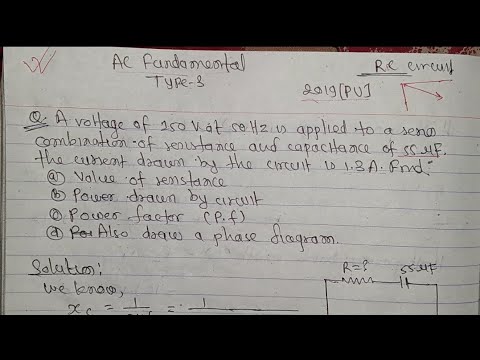 AC Fundamental
Type-3
R.C circuit
2019[PU]
Q. A voltage of 150 V at 50 Hz is applied to a series
combination of resistance and capacitance of 55 μF.
the current drawn by the circuit is 1.3 A. Find:
(a) Value of resistance
(b) Power drawn by circuit
(c) Power factor (P.f)
(d) Also draw a phase diagram.
Solution:
we know,
R=?
55 μF
Xc = 1 = 1